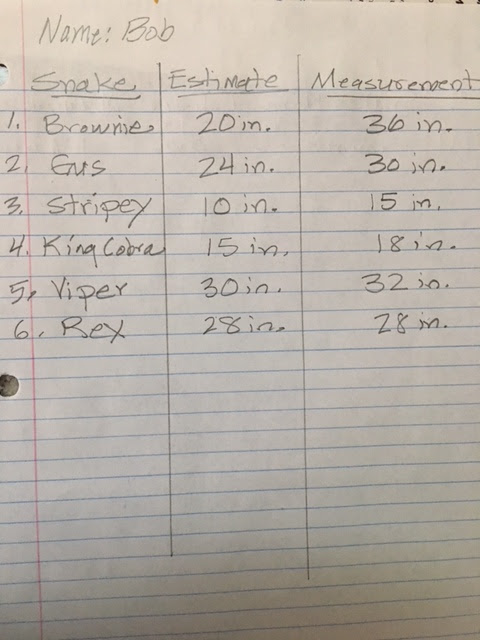 Name: Bob
Snake Estimate Measurement
1. Brownie 20 in. 36 in.
2. Gus 24 in. 30 in.
3. Stripey 10 in. 15 in.
4. King Cobra 15 in. 18 in.
5. Viper 30 in. 32 in.
6. Rex 28 in. 28 in.